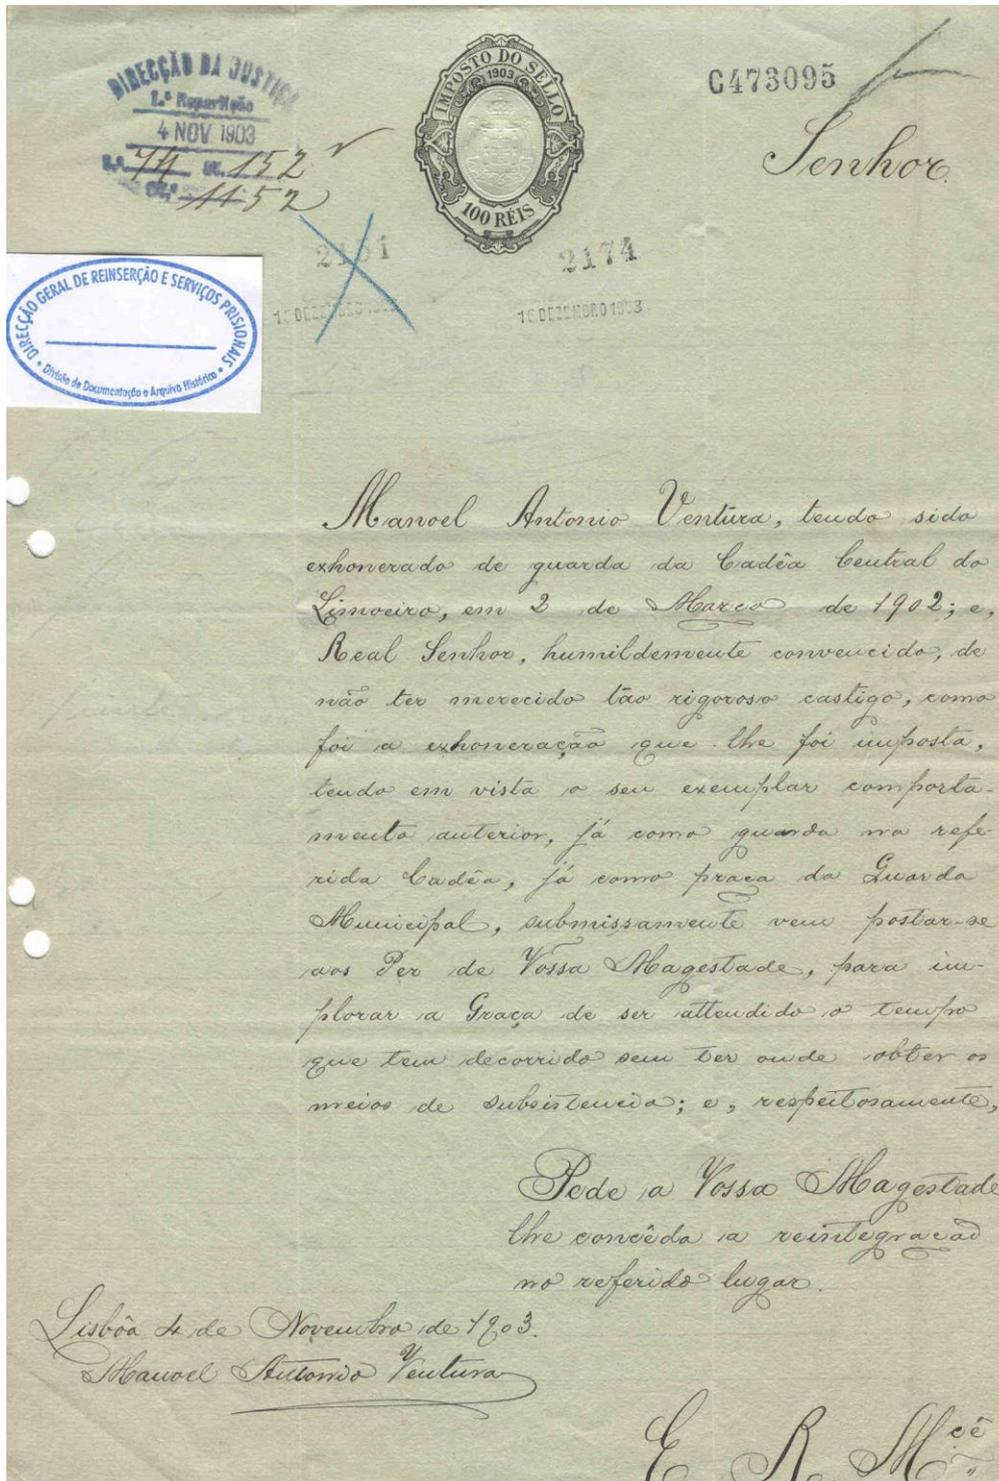 DIRECÇÃO DA JUSTIÇA
1.ª Repartição
4 NOV 1903
74 152
1152
IMPOSTO DO SELLO
1903
100 RÉIS
C473095
Senhor.
2174
16 DEZEMBRO 1903
DIRECÇÃO GERAL DE REINSERÇÃO E SERVIÇOS PRISIONAIS
Divisão de Documentação e Arquivo Histórico
Manoel Antonio Ventura, tendo sido
exhonerado de guarda da Cadêa Central do
Limoeiro, em 2 de Março de 1902; e,
Real Senhor, humildemente convencido, de
não ter merecido tão rigoroso castigo, como
foi a exhoneração que lhe foi imposta,
tendo em vista o seu exemplar comporta-
mento anterior, já como guarda na refe-
rida Cadêa, já como praça da Guarda
Municipal, submissamente vem postar-se
aos Pés de Vossa Magestade, para im-
plorar a Graça de ser attendido o tempo
que tem decorrido sem ter onde obter os
meios de subsistencia; e, respeitosamente,
Pede a Vossa Magestade
lhe concêda a reintegração
no referido lugar.
Lisbôa 4 de Novembro de 1903.
Manoel Antonio Ventura
E R M.cê